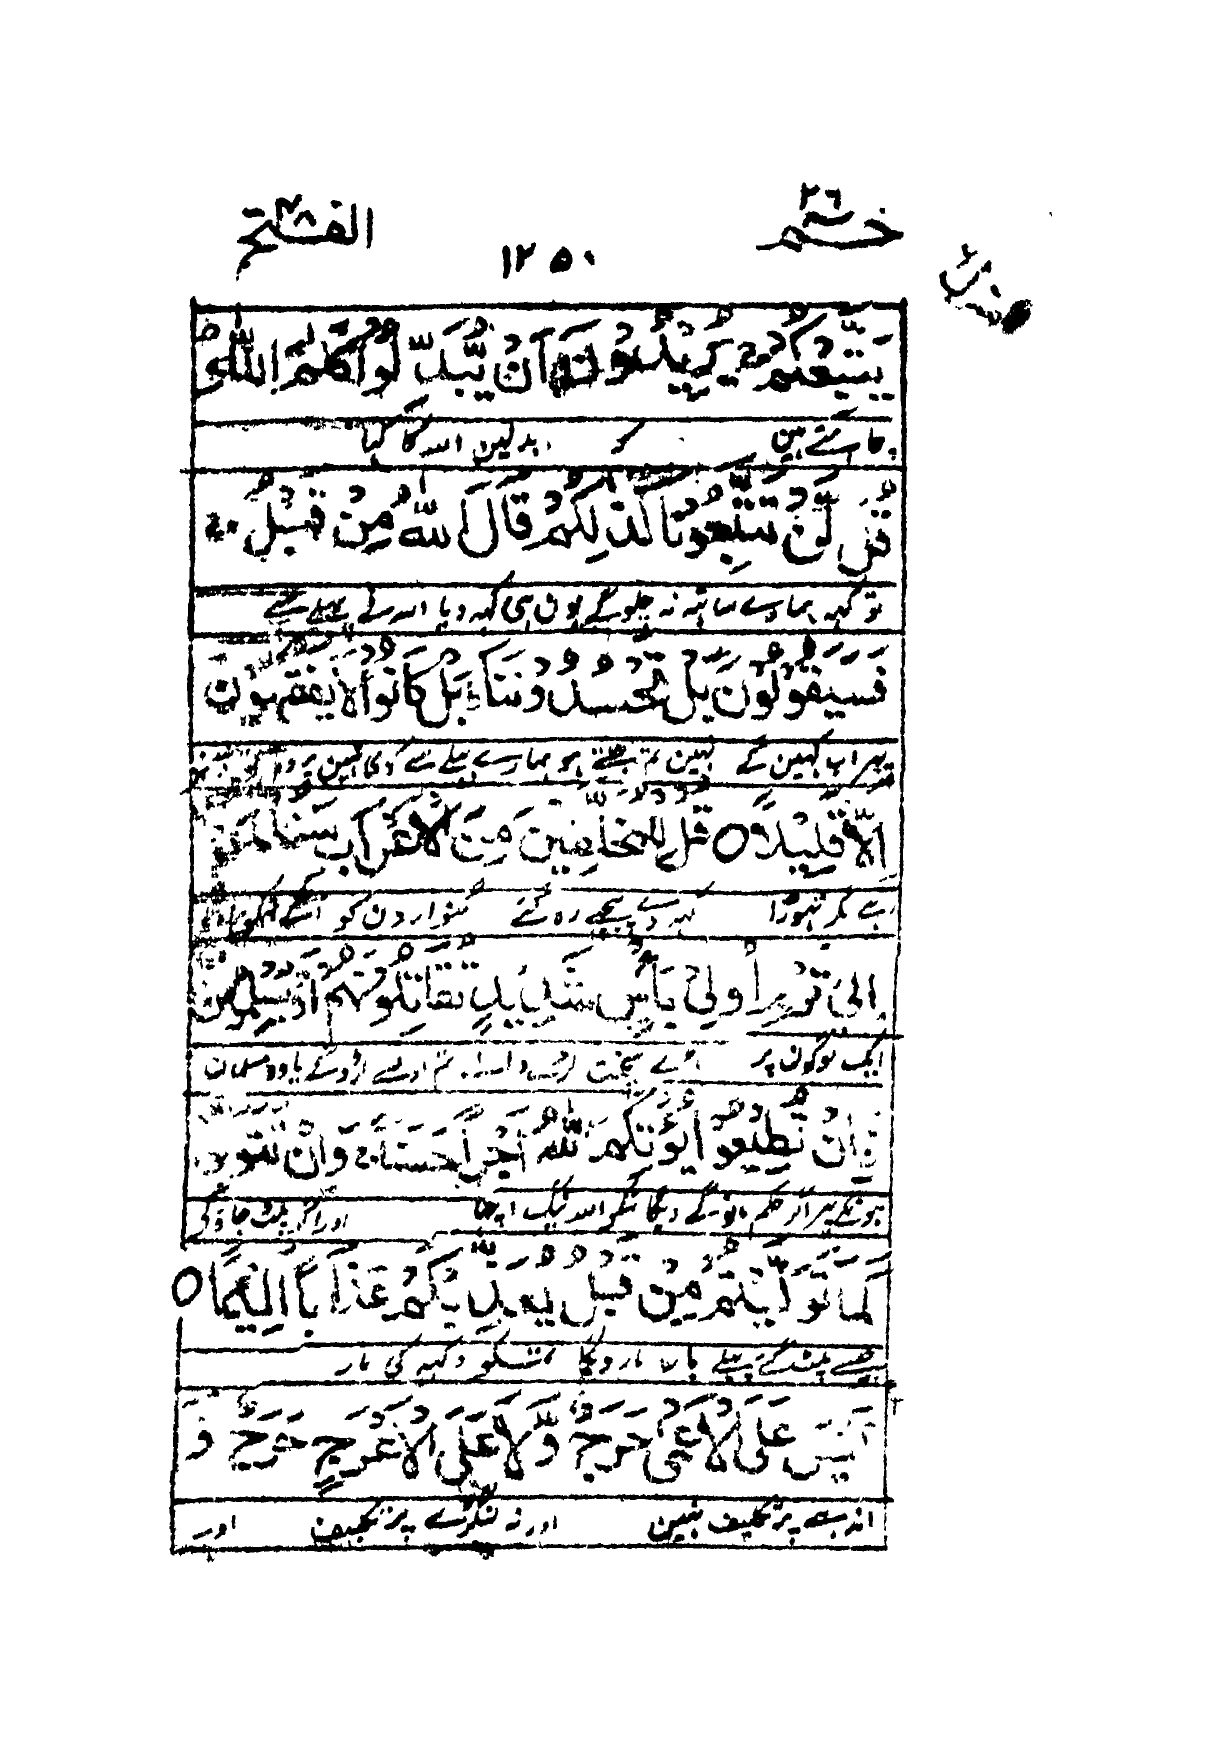 خم ٢٦
١٢٥٠
الفتح ٤٨
نَتَّبِعْكُمْ يُرِيْدُوْنَ اَنْ يُّبَدِّلُوْا كَلٰمَ اللّٰهِ
چاہتے ہین کہ بدلین اللہ کا کہا
قُلْ لَّنْ تَتَّبِعُوْنَا كَذٰلِكُمْ قَالَ اللّٰهُ مِنْ قَبْلُ
تو کہہ ہمارے ساتھ نہ چلوگے یون ہی کہہ دیا اللہ نے پہلے سے
فَسَيَقُوْلُوْنَ بَلْ تَحْسُدُوْنَنَا بَلْ كَانُوْا لَا يَفْقَهُوْنَ
پھر اب کہین گے نہین تم جلتے ہو ہمارے بھلے سے کوئی نہین پر وہ
اِلَّا قَلِيْلًا ○ قُلْ لِّلْمُخَلَّفِيْنَ مِنَ الْاَعْرَابِ سَتُدْعَوْنَ
رہے مگر تھوڑا کہہ دے پیچھے رہ گئے گنوارون کو آگے تمکو
اِلٰى قَوْمٍ اُولِيْ بَاْسٍ شَدِيْدٍ تُقَاتِلُوْنَهُمْ اَوْ يُسْلِمُوْنَ
ایک لوگون پر بڑے سخت لڑنے والے تم ان سے لڑوگے یا وہ مسلمان
فَاِنْ تُطِيْعُوْا يُؤْتِكُمُ اللّٰهُ اَجْرًا حَسَنًا وَاِنْ تَتَوَلَّوْا
ہونگے پھر اگر حکم مانوگے دیگا تمکو اللہ نیک اچھا اور اگر پلٹ جاؤگے
كَمَا تَوَلَّيْتُمْ مِّنْ قَبْلُ يُعَذِّبْكُمْ عَذَابًا اَلِيْمًا ○
جیسے پلٹ گئے پہلے بار مار دیگا تمکو دکھہ کی مار
لَيْسَ عَلَى الْاَعْمٰى حَرَجٌ وَّلَا عَلَى الْاَعْرَجِ حَرَجٌ وَّ
اندھے پر تکلیف نہین اور نہ لنگڑے پر تکلیف اور